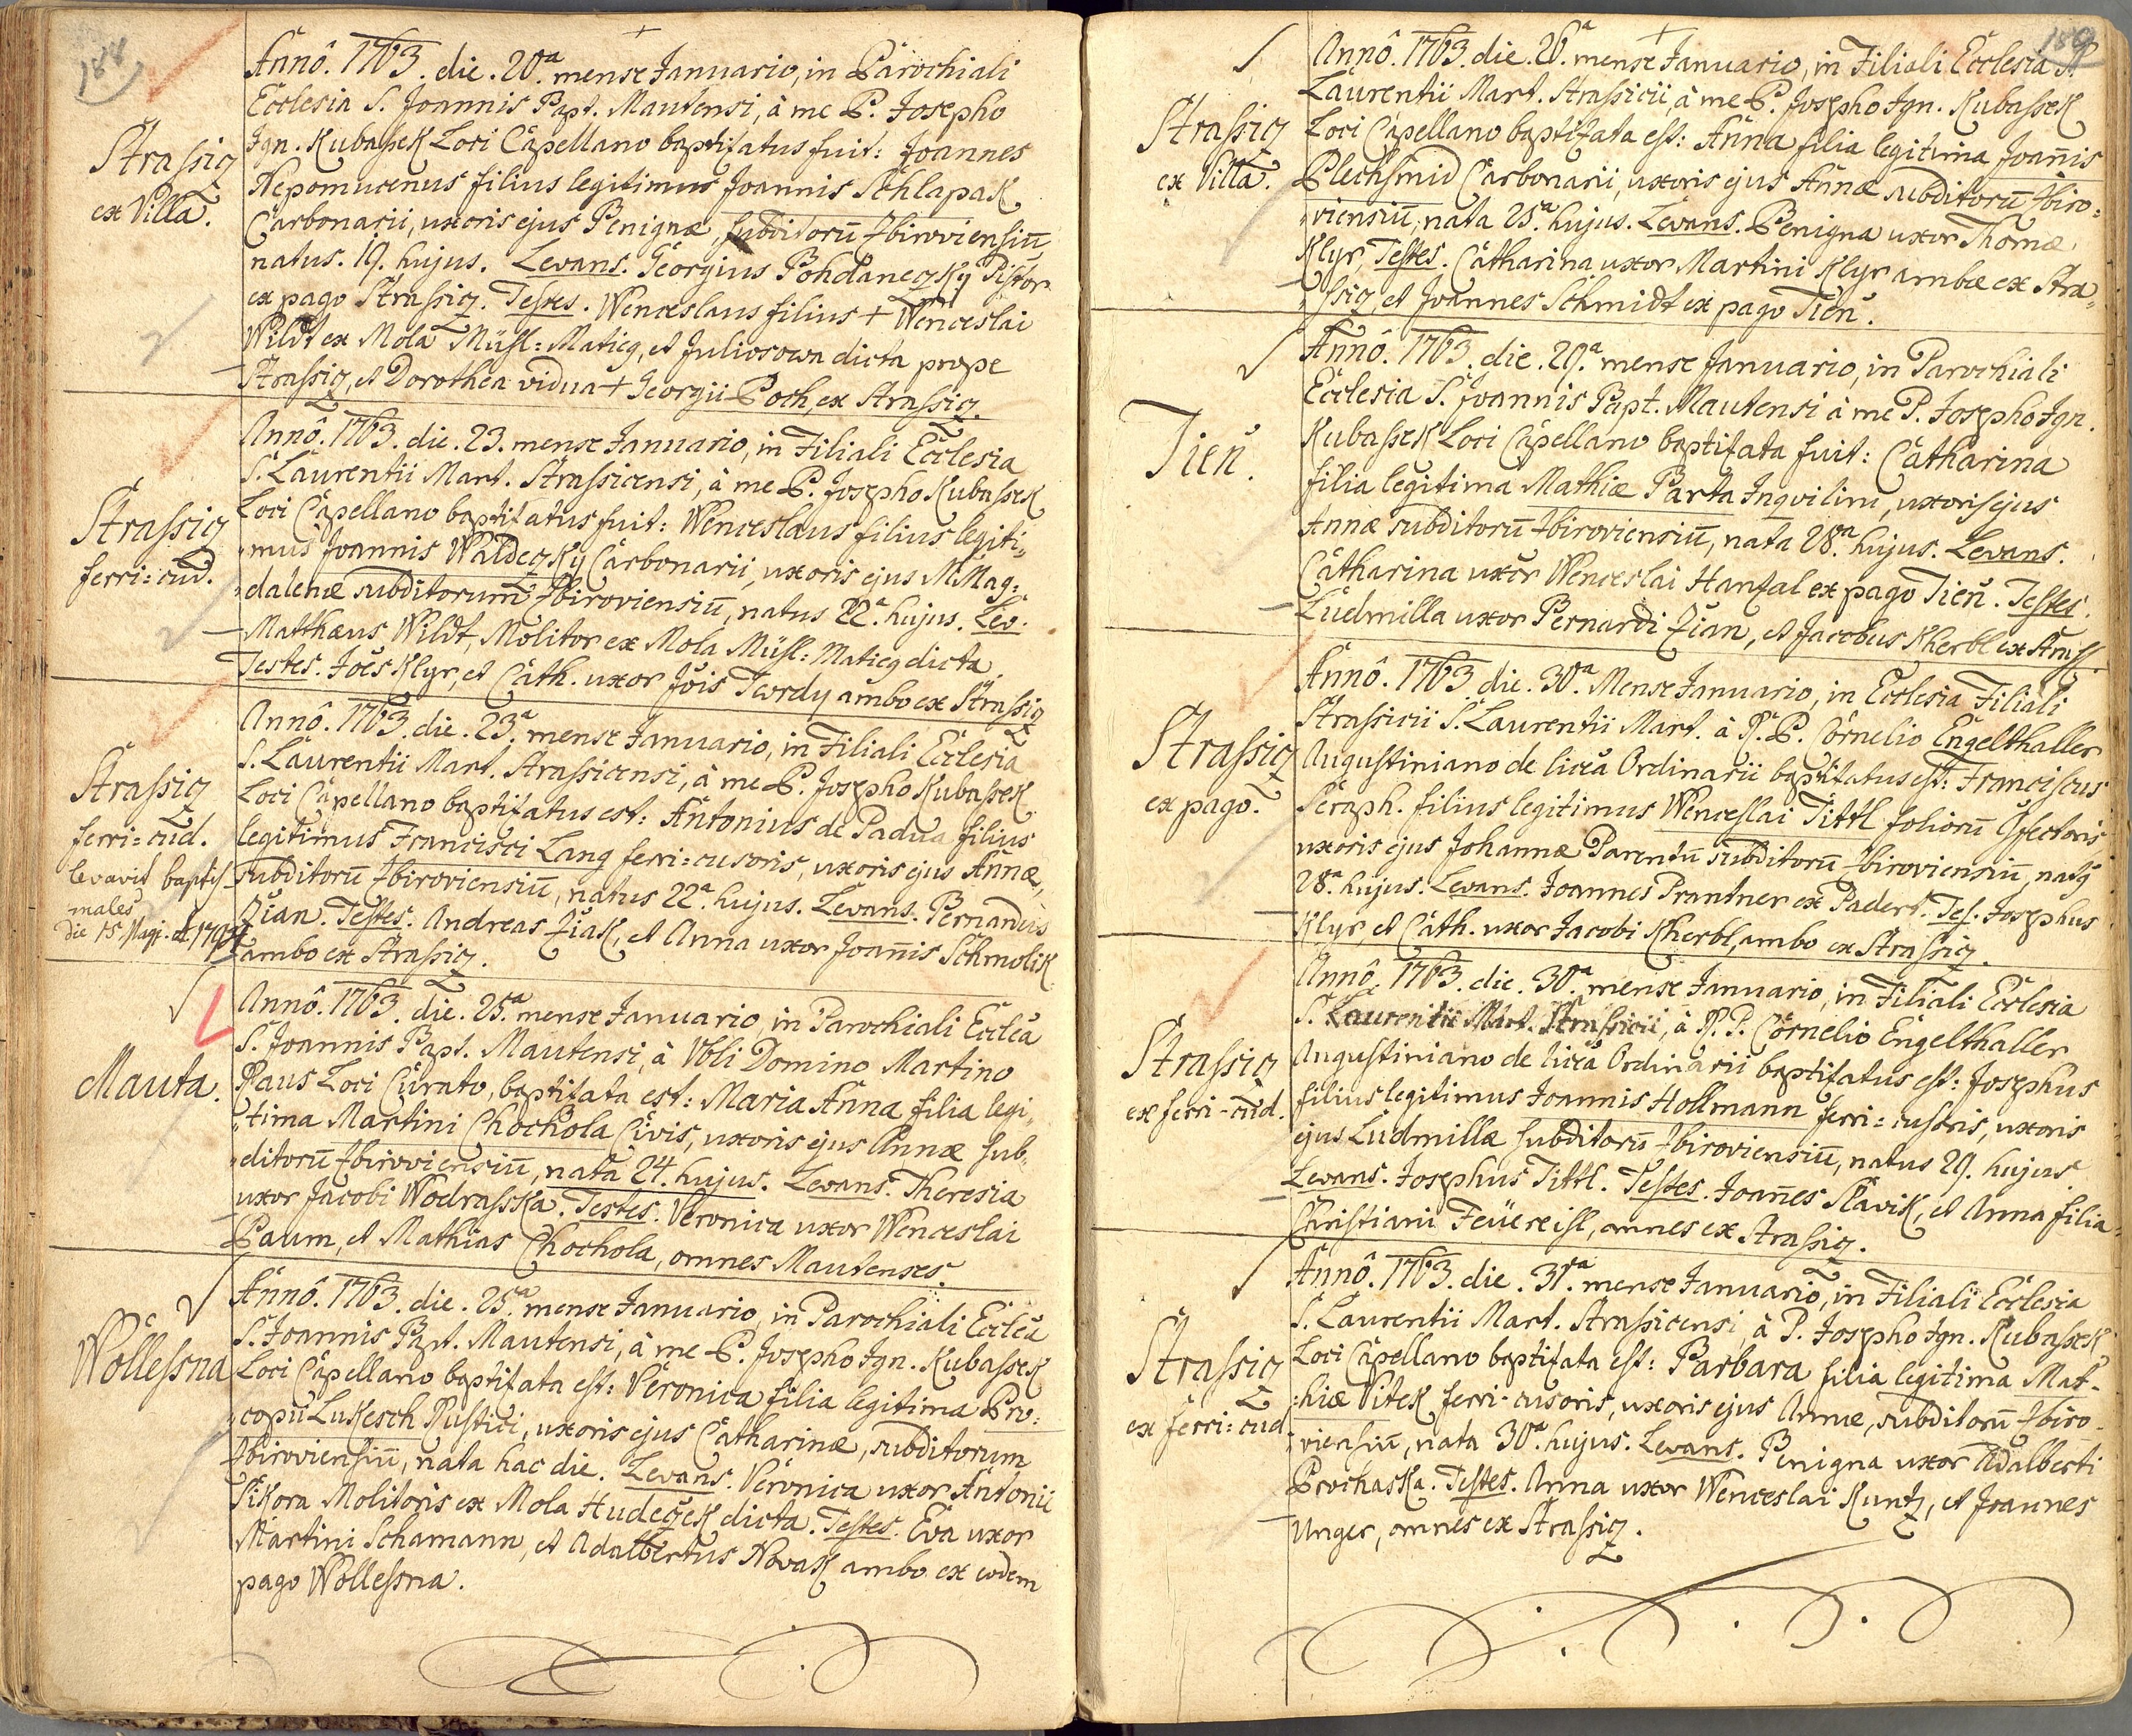 188
Strassiz
ex Villa.
Annô. 1763. die. 20.ª mense Januario, in Parochiali
Ecclesia S. Joannis Bapt. Mautensi, à me P. Josepho
Ign. Kubassek Loci Capellano baptizatus fuit: Joannes
Nepomucenus filius legitimus Joannis Schlapak
Carbonarii, uxoris ejus Benignæ, subditorū Zbiroviensiū
natus. 19. hujus. Levans. Georgius Bohdaneczky Pistor
ex pago Strassiz. Testes. Wenceslaus filius + Wenceslai
Wildt ex Mola Müsl: Maticz, et Juliosowa dicta prope
Strassiz, et Dorothea vidua + Georgii Poch, ex Strassiz.
Strassiz
ferri: cud.
Annô. 1763. die. 23. mense Januario, in Filiali Ecclesia
S. Laurentii Mart. Strassicensi, à me P. Josepho Kubassek
Loci Capellano baptizatus fuit: Wenceslaus filius legiti„
„mus Joannis Waldeczky Carbonarii, uxoris ejus M Mag:
„dalenæ subditorum Zbiroviensiū, natus 22.ª hujus. Lev.
Matthæus Wildt, Molitor ex Mola Müsl: Maticz dicta.
Testes. Jões Klyr, et Cath. uxor Jõis Twrdy ambo ex Strassiz
Strassiz
ferri: cud.
levavit baptis
males
die 15 Maji. a. 1794
Annô. 1763. die. 23.ª mense Januario, in Filiali Ecclesia
S. Laurentii Mart. Strassicensi, à me P. Josepho Kubassek
Loci Capellano baptizatus est: Antonius de Padua filius
legitimus Francisci Lang ferri: cusoris, uxoris ejus Annæ,
subditorū Zbiroviensiū, natus 22.ª hujus. Levans. Bernardus
Zian. Testes. Andreas Ziak, et Anna uxor Joannis Schmolik
ambo ex Strassiz.
Mauta.
Annô. 1763. die. 25.ª mense Januario, in Parochiali Ecclêa
S. Joannis Bapt. Mautensi, à Vbli Domino Martino
Raus Loci Curato, baptizata est: Maria Anna filia legi„
„tima Martini Chochola Civis, uxoris ejus Annæ sub„
„ditorū Zbiroviensiū, nata 24. hujus. Levans. Theresia
uxor Jacobi Wodrasska. Testes. Veronica uxor Wenceslai
Baum, et Mathias Chochola, omnes Mautenses.
Wollessna
Annô. 1763. die. 25.ª mense Januario, in Parochiali Ecclêa
S. Joannis Bapt. Mautensi, à me P. Josepho Ign. Kubassek
Loci Capellano baptizata est: Veronica filia legitima Pro:
„copii Lukesch Rustici, uxoris ejus Catharinæ, subditorum
Zbiroviensiū, nata hac die. Levans. Veronica uxor Antonii
Sikora Molitoris ex Mola Hudeczek dicta. Testes. Eva uxor
Martini Schamann, et Adalbertus Novak ambo ex eodem
pago Wollessna.
189
Strassiz
ex Villa.
Annô. 1763. die. 26.ª mense Januario, in Filiali Ecclesia S.
Laurentii Mart. Strassicii, à me P. Josepho Ign. Kubassek
Loci Capellano baptizata est: Anna filia legitima Joannis
Plechsmid Carbonarii, uxoris ejus Annæ subditorū Zbiro:
„viensiū, nata 25.ª hujus. Levans. Benigna uxor Thomæ
Klyr, Testes. Catharina uxor Martini Klyr ambæ ex Stra„
„ssiz, et Joannes Schmidt ex pago Tieň.
Tieň.
Annô. 1763. die. 29.ª mense Januario, in Parochiali
Ecclesia S. Joannis Bapt. Mautensi à me P. Josepho Ign.
Kubassek Loci Capellano baptizata fuit: Catharina
filia legitima Mathiæ Parta Inqvilini, uxoris ejus
Annæ subditorū Zbiroviensiū, nata 28.ª hujus. Levans.
Catharina uxor Wenceslai Hanzal ex pago Tieň. Testes.
Ludmilla uxor Bernardi Zian, et Jacobus Kherbl ex Strass.
Strassiz
ex pago.
Annô. 1763. die. 30.ª Mense Januario, in Ecclesia Filiali
Strassicii S. Laurentii Mart. à R. P. Cornelio Engelthaller
Augustiniano de licêa Ordinarii baptizatus est: Franciscus
Seraph. filius legitimus Wenceslai Tittl foliorū Confectoris,
uxoris ejus Johannæ Parentū subditorū Zbiroviensiū, natq
28.ª hujus. Levans. Joannes Prantner ex Padert. Tes. Josephus
Klyr, et Cath. uxor Jacobi Kherbl, ambo ex Strassiz.
Strassiz
ex ferri-cud.
Annô. 1763. die. 30.ª mense Januario, in Filiali Ecclesia
S. Laurentii Mart. Strassicii, à R. P. Cornelio Engelthaller
Augustiniano de licêa Ordinarii baptizatus est: Josephus
filius legitimus Joannis Hollmann ferri: cusoris, uxoris
ejus Ludmillæ subditorū Zbiroviensiū, natus 29. hujus.
Levans. Josephus Tittl. Testes. Joañes Slavik, et Anna filia
Christiani Feüereisl, omnes ex Strassiz.
Strassiz
ex ferri: cud
Annô. 1763. die. 31.ª mense Januario, in Filiali Ecclesia
S. Laurentii Mart. Strassicensi, à P. Josepho Ign. Kubassek
Loci Capellano baptizata est: Barbara filia legitima Mat-
:hiæ Vitek ferri-cusoris, uxoris ejus Annæ, subditorū Zbiro-
viensiū, nata 30.ª hujus. Levans. Benigna uxor Adalberti
Prochaska. Testes. Anna uxor Wenceslai Kuntz, et Joannes
Unger, omnes ex Strassiz.